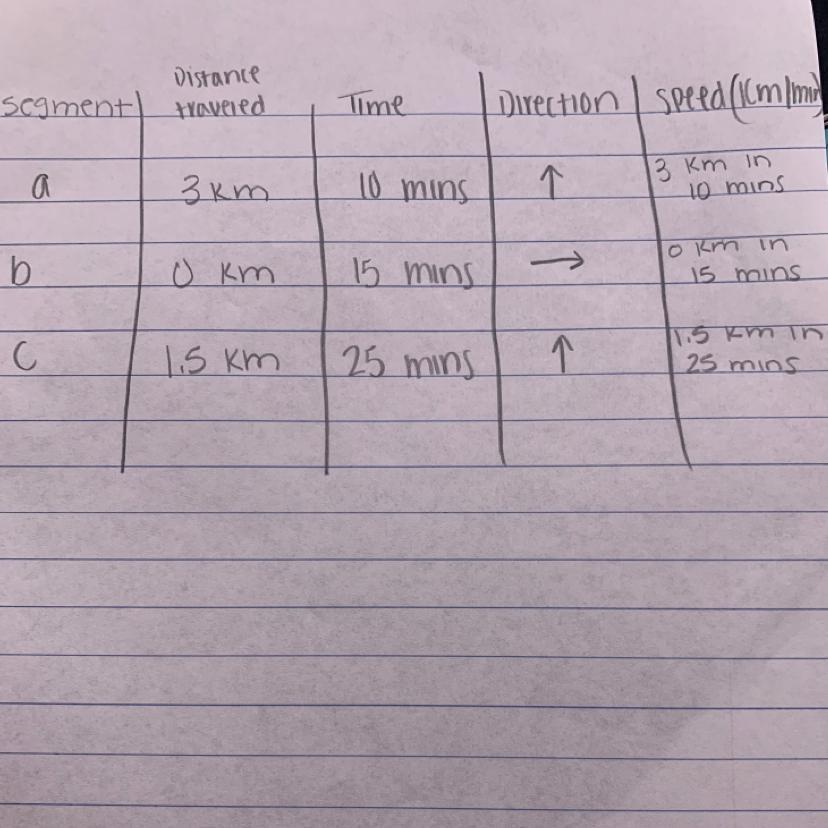 segment | Distance traveled | Time | Direction | speed (Km/min)
a | 3 km | 10 mins | ↑ | 3 km in 10 mins
b | 0 km | 15 mins | → | 0 km in 15 mins
C | 1.5 km | 25 mins | ↑ | 1.5 km in 25 mins